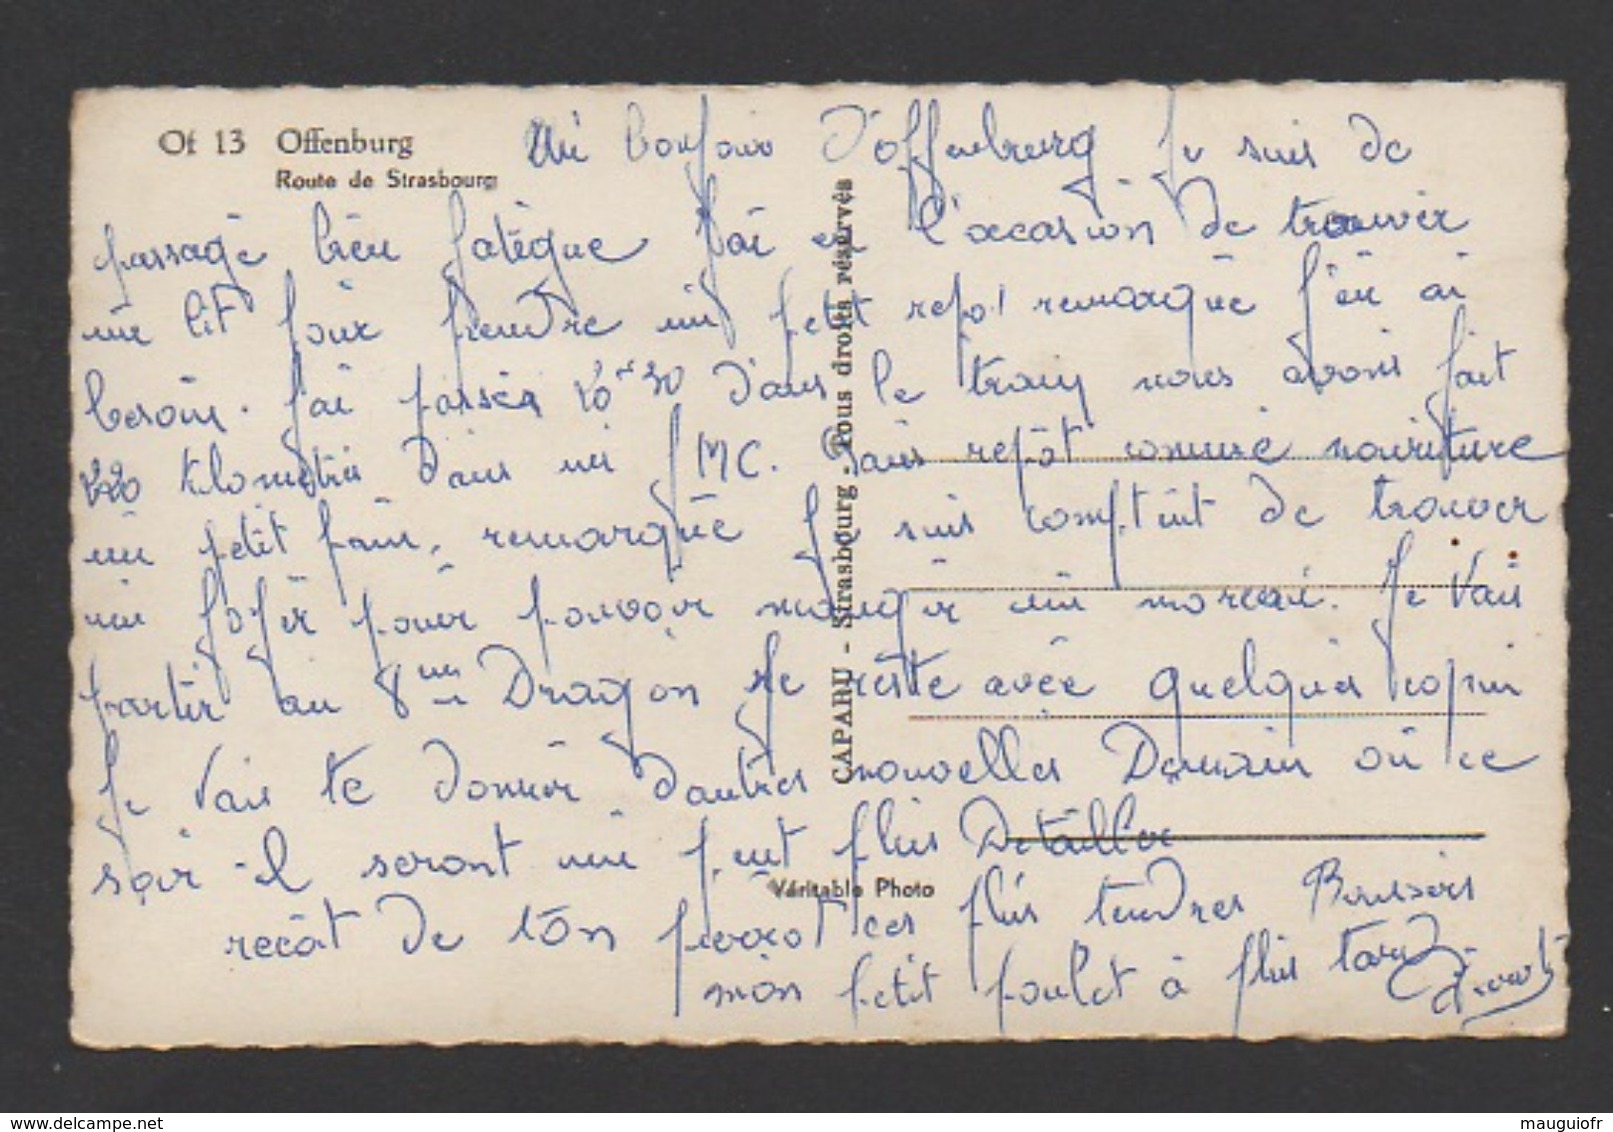 Of 13 Offenburg
Route de Strasbourg
Un bonjour D'offenburg Je suis de
passage bien fatégue J'ai eu l'occasion de trouver
un lit pour prendre un petit repot remarque j'en ai
besoin. J'ai passér 10 h 30 Dans le train nous avons fait
220 Kilometre Dans un GMC. Sans repôt comme nouriture
un petit pain, remarque Je suis comptent de trouver
un foyer pour pouvoir manger un morceau. Je Vais
partir au 8me Dragon Je reste avec quelques copin
Je Vais te donner d'autres nouvelles Demain où ce
soir il seront un peut plus Detailler
recoit de ton pierrot ces plus tendres Baissers
mon petit poulet à plus tard
Pierrot
CAPAHU - Strasbourg. Tous droits réservés
Véritable Photo
mauguiofr